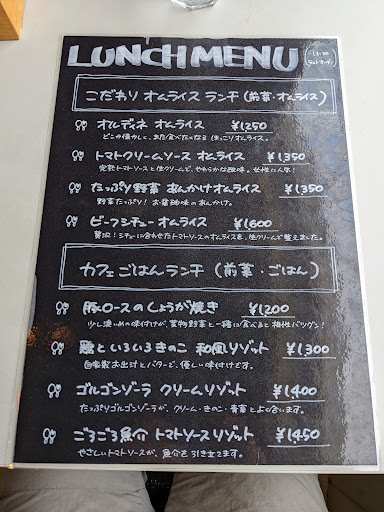 LUNCH MENU
-13:30
ラストオーダー
こだわり オムライス ランチ (前菜・オムライス)
オルディネ オムライス ¥1250
どこか懐かしく、また食べたくなる ほっこりオムライス。
トマトクリームソース オムライス ¥1350
完熟トマトソースと生クリームで、やわらかな酸味。女性に人気!
たっぷり野菜 あんかけオムライス ¥1350
野菜たっぷり! お醤油味のあんかけ。
ビーフシチュー オムライス ¥1600
贅沢!シチューに合わせたトマトソースのオムライスを、生クリームで整えました。
カフェごはんランチ (前菜・ごはん)
豚ロースのしょうが焼き ¥1200
少し濃いめの味付けが、葉物野菜と一緒に食べると相性バツグン!
鶏といろいろきのこ 和風リゾット ¥1300
自家製お出汁とバターで、優しい味付けです。
ゴルゴンゾーラ クリームリゾット ¥1400
たっぷりゴルゴンゾーラが、クリーム・きのこ・青菜とよく合います。
ごろごろ魚介 トマトソースリゾット ¥1450
やさしいトマトソースが、魚介を引き立てます。